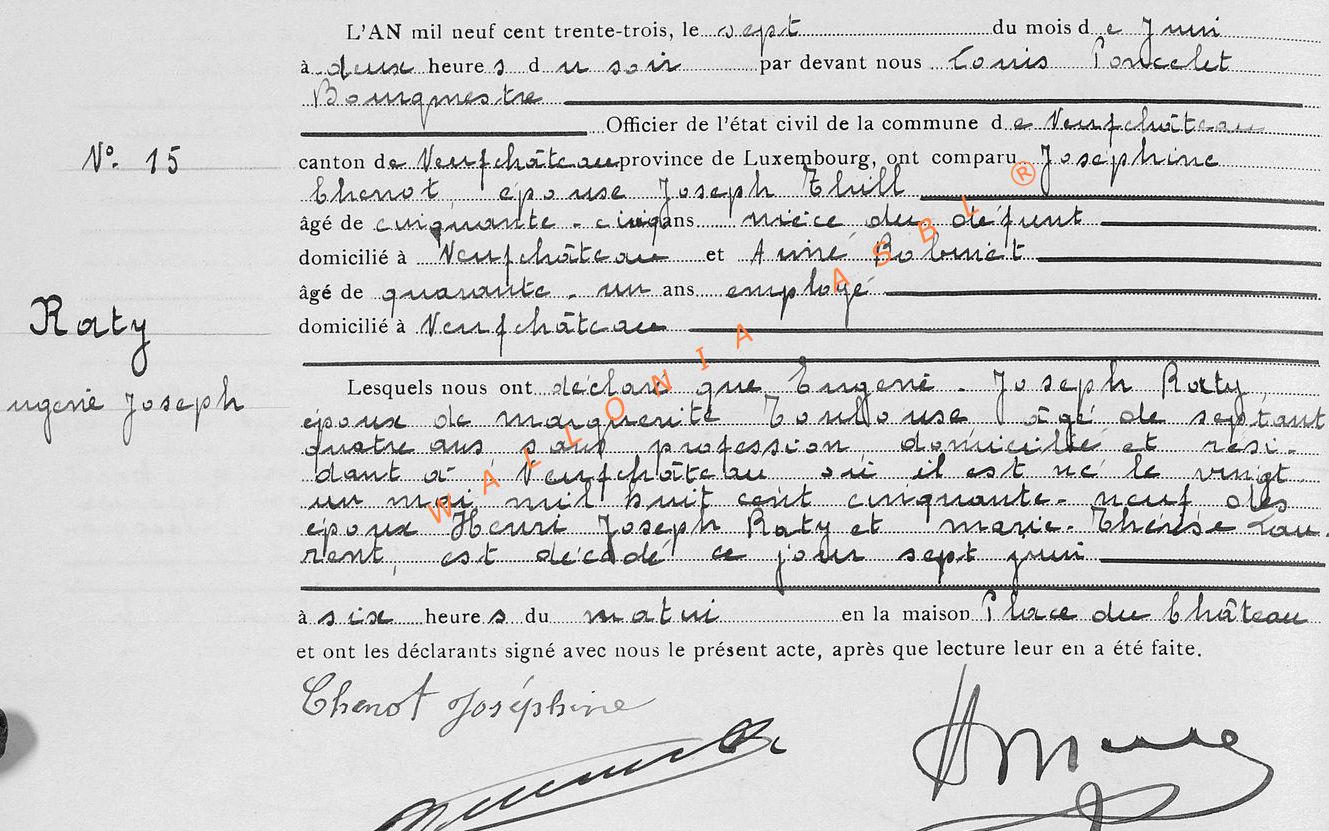 L'AN mil neuf cent trente-trois, le sept du mois de Juin
à deux heures du soir par devant nous Louis Poncelet
Bourgmestre
Officier de l'état civil de la commune de Neufchâteau
N° 15
canton de Neufchâteau province de Luxembourg, ont comparu Joséphine
Chenot, épouse Joseph Thill
âgé de cinquante-cinq ans nièce du défunt
domicilié à Neufchâteau et Aimé Robinet
âgé de quarante-un ans employé
Raty
domicilié à Neufchâteau
Lesquels nous ont déclaré que Eugène-Joseph Raty
ugène Joseph
époux de Marguerite Toulouse âgé de septant
quatre ans, sans profession, domicilié et rési-
dant à Neufchâteau où il est né le vingt
un mai mil huit cent cinquante-neuf des
époux Henri Joseph Raty et Marie-Thérèse Lau-
rent, est décédé ce jour sept juin
à six heures du matin en la maison Place du Château
et ont les déclarants signé avec nous le présent acte, après que lecture leur en a été faite.
Chenot Joséphine
WALLONIA ASBL ®